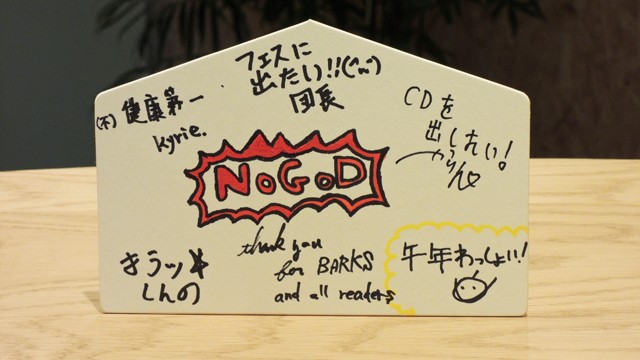 フェスに
出たい!!(^^)
団長
(不) 健康第一
kyrie.
CDを
出したい!
NoGoD
きラッ☆
しんの
thank you
for BARKS
and all readers
午年わっしょい!